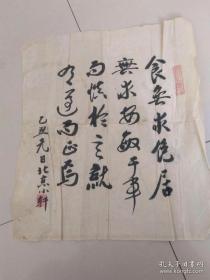 食無求飽居
無求安敏于事
而慎於言就
有道而正焉
乙丑元日北京小軒